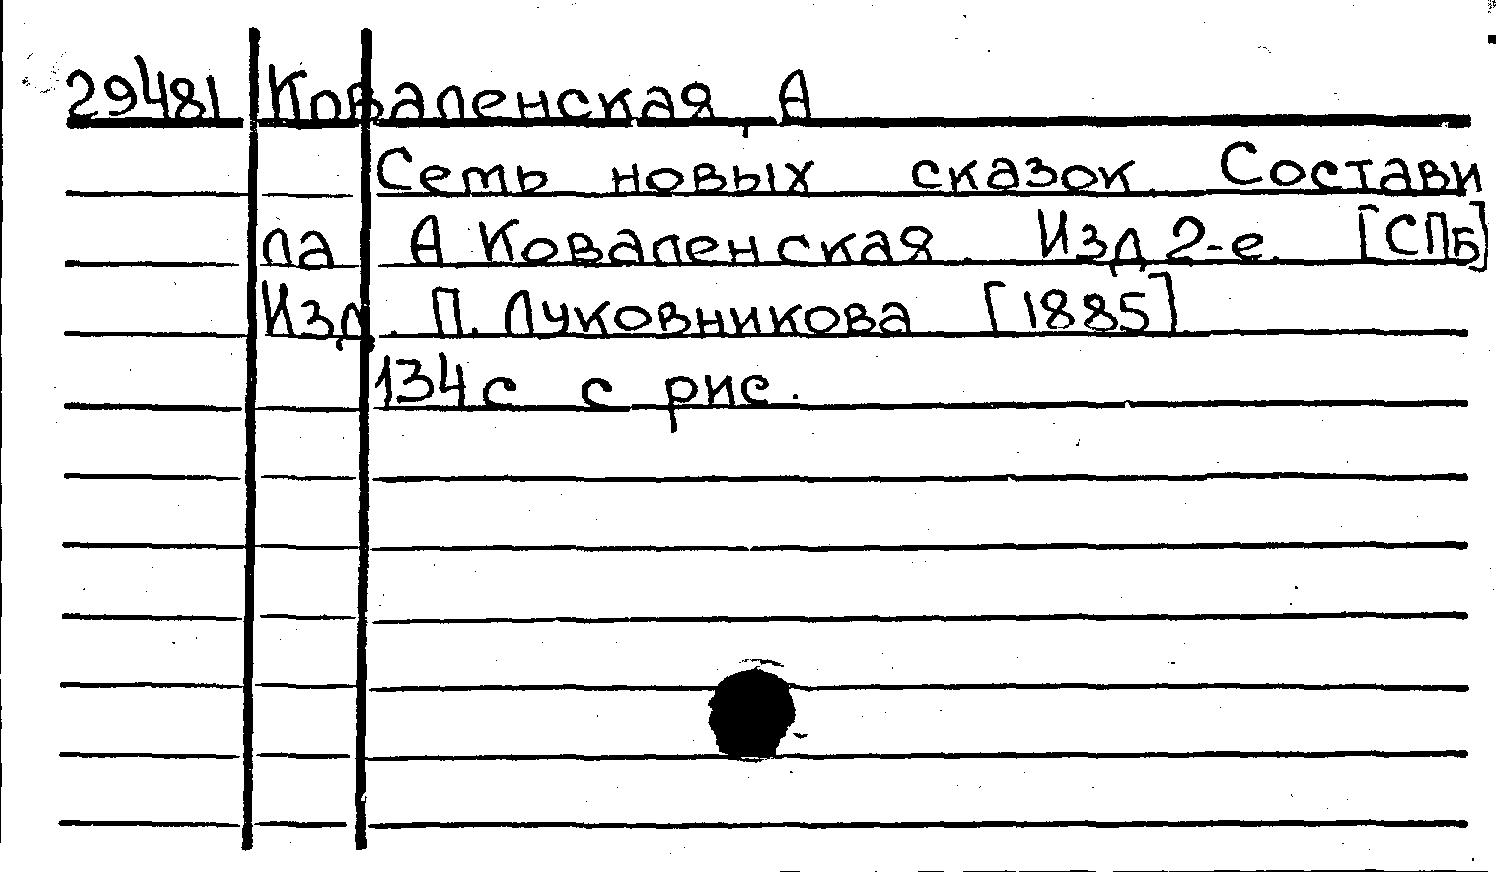 29481 Коваленская, А
Семь новых сказок. Состави
ла А Коваленская. Изд 2-е. [СПб]
Изд. П. Луковникова [1885]
134с с рис.